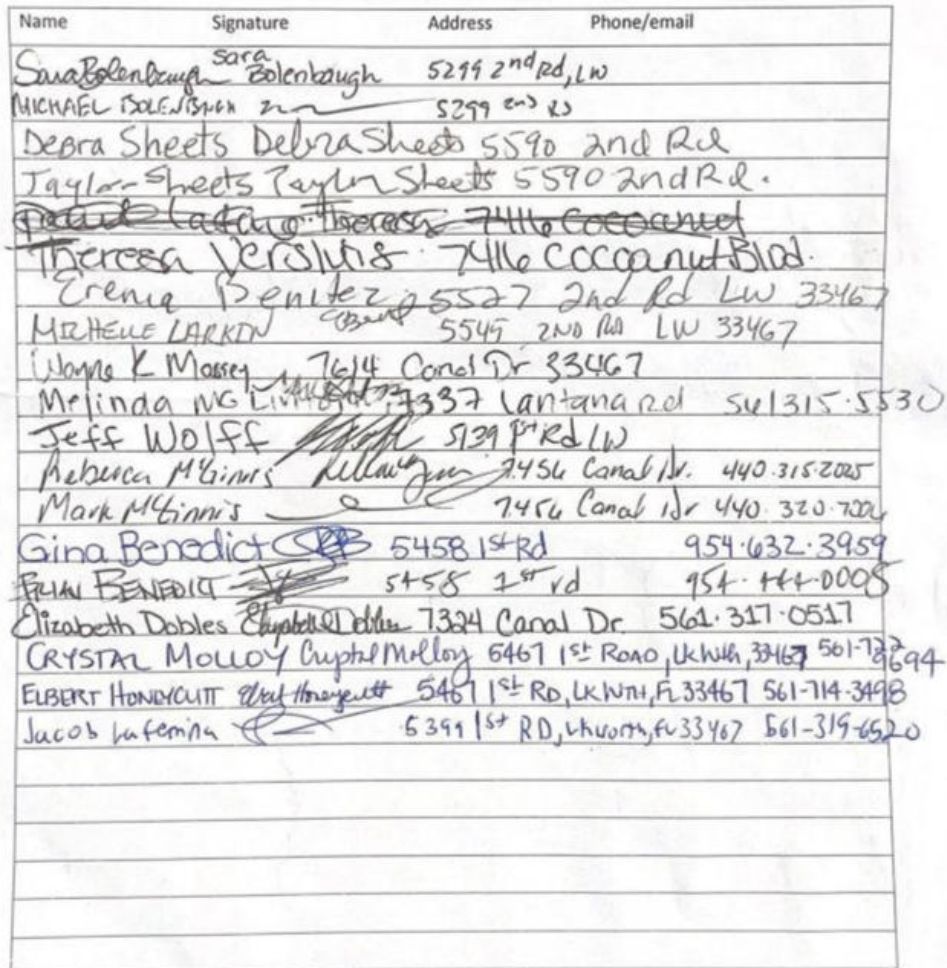 Name Signature Address Phone/email
Sara Bolenbaugh Sara Bolenbaugh 5299 2nd Rd, LW
MICHAEL BOLENBAUGH 5299 2nd RD
Debra Sheets Debra Sheets 5590 2nd Rd
Taylor Sheets Taylor Sheets 5590 2nd Rd.
Theresa 7416 Cocoanut
Theresa Versluis 7416 Cocoanut Blvd.
Erenia Benitez 5527 2nd Rd LW 33467
MICHELLE LARKIN 5545 2ND RD LW 33467
Wayne K Massey 7614 Canal Dr 33467
Melinda 7337 Lantana rd 561 315.5530
Jeff Wolff 5139 1st Rd LW
Rebecca McGinnis 7456 Canal Dr. 440.315.2025
Mark McGinnis 7456 Canal Dr 440.320.7006
Gina Benedict 5458 1st Rd 954.632.3959
BRIAN BENEDICT 5458 1st rd 954.444.0005
Elizabeth Dobles Elizabeth Dobles 7324 Canal Dr. 561.317.0517
CRYSTAL MOLLOY Crystal Molloy 5467 1st ROAD, LK Wth, 33467
ELBERT HONEYCUTT Elbert Honeycutt 5467 1st RD, LK WTH, FL 33467 561-714-3498
Jacob Lafemina 5399 1st RD, Lk worth, FL 33467 561-319-6520